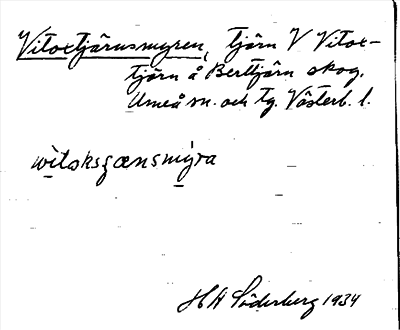 Vitoxtjärnsmyren, tjärn V Vitox-
tjärn å Berttjärn skog.
Umeå sn. och tg. Västerb. l.
witoksgænsmyra
H A Söderberg 1934